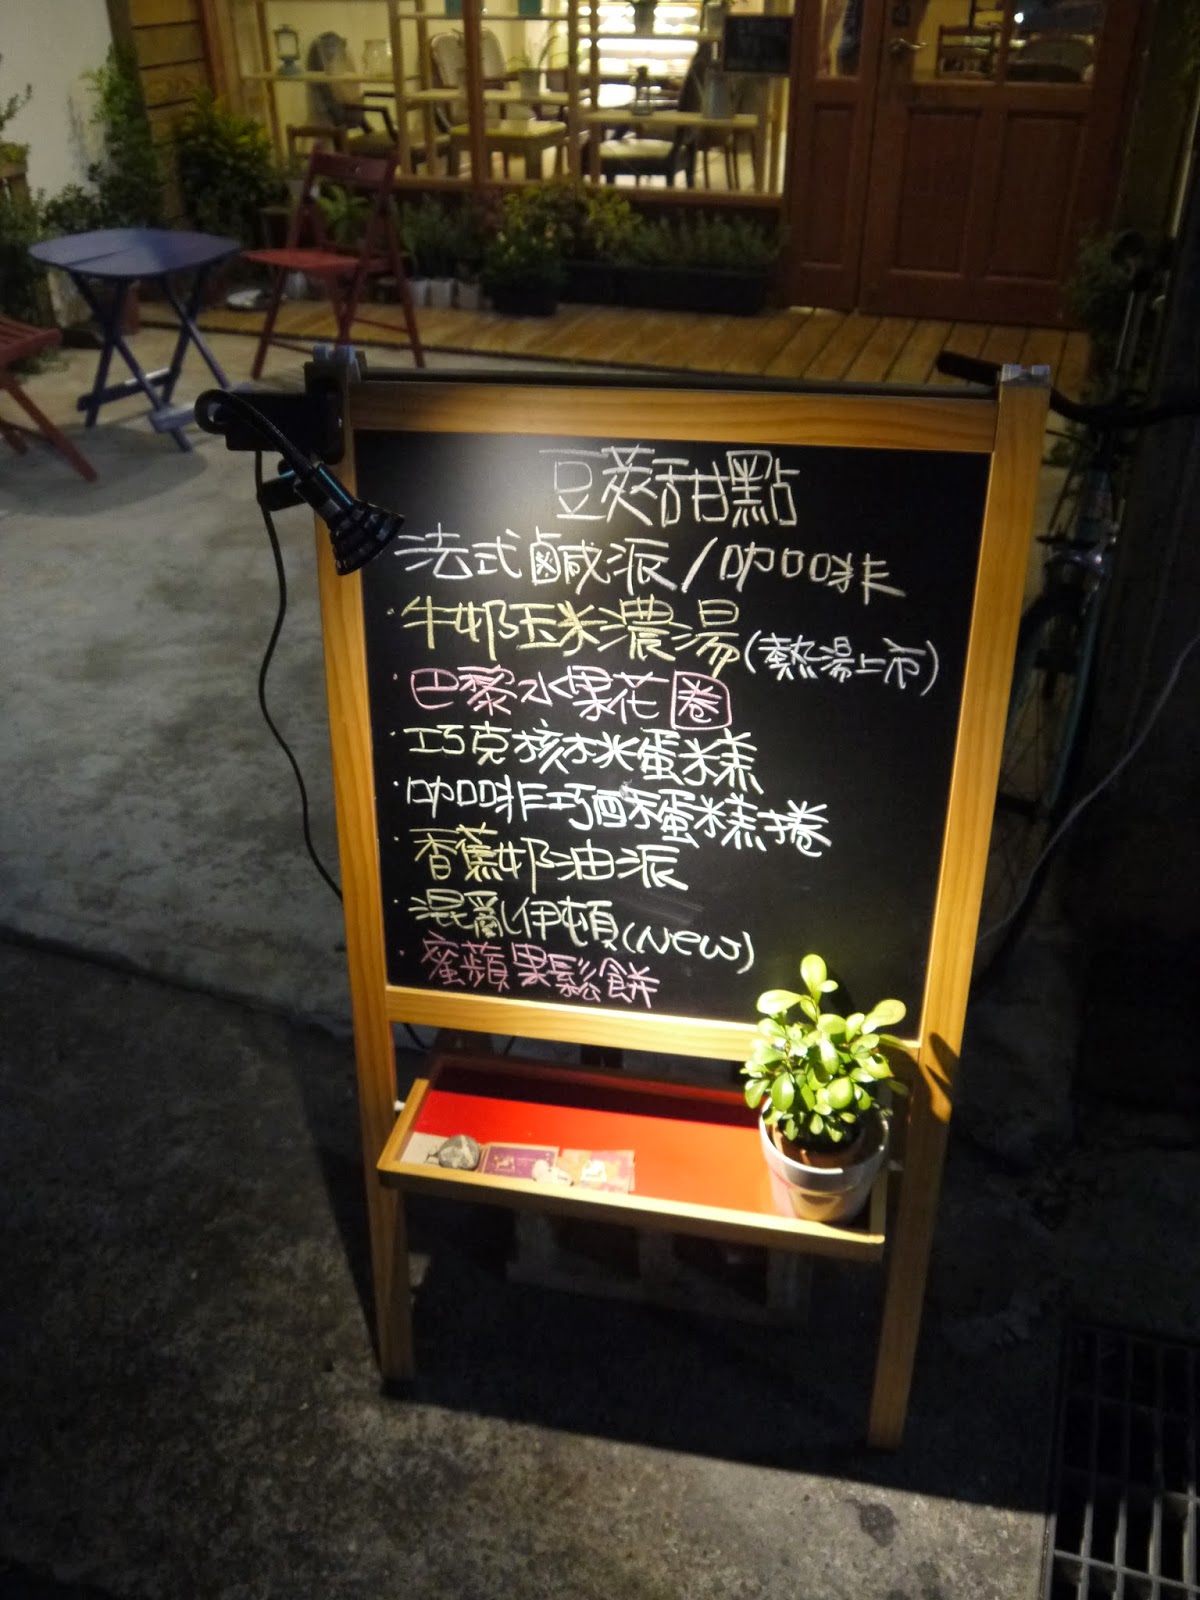 豆莢甜點
法式鹹派/咖啡
·牛奶玉米濃湯(熱湯上市)
·巴黎水果花圈
·巧克核桃蛋糕
·咖啡巧酥蛋糕捲
·香蕉奶油派
·混亂伊頓(New)
·蜜蘋果鬆餅